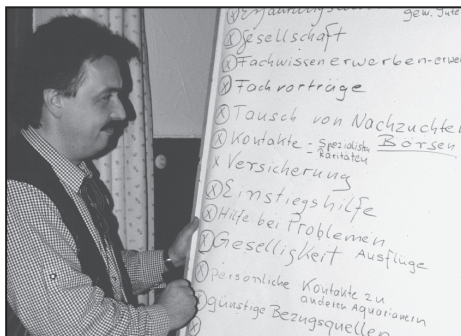 gew. Gute
Gesellschaft
Fachwissen erwerben-erwe
Fachvorträge
Tausch von Nachzuchten
Kontakte - Spezialisten Börsen
- Raritäten
x Versicherung
Einstiegshilfe
Hilfe bei Problemen
Geselligkeit Ausflüge
persönliche Kontakte zu
anderen Aquarianern
günstige Bezugsquellen